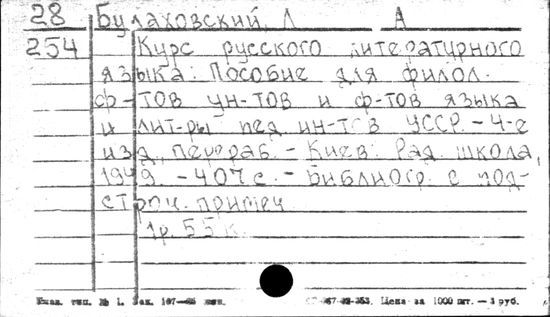 28 Булаховский, Л А
254 Курс русского литературного
языка: Пособие для филол.
ф-тов ун-тов и ф-тов языка
и лит-ры пед ин-тов УССР. - 4-е
изд., перераб. - Киев: Рад. школа,
1949. - 407 с. - Библиогр. в под-
строч. примеч.
1р. 55 к.
тип. № 1. Зак. 167- Цена за 1000 шт. — 3 руб.